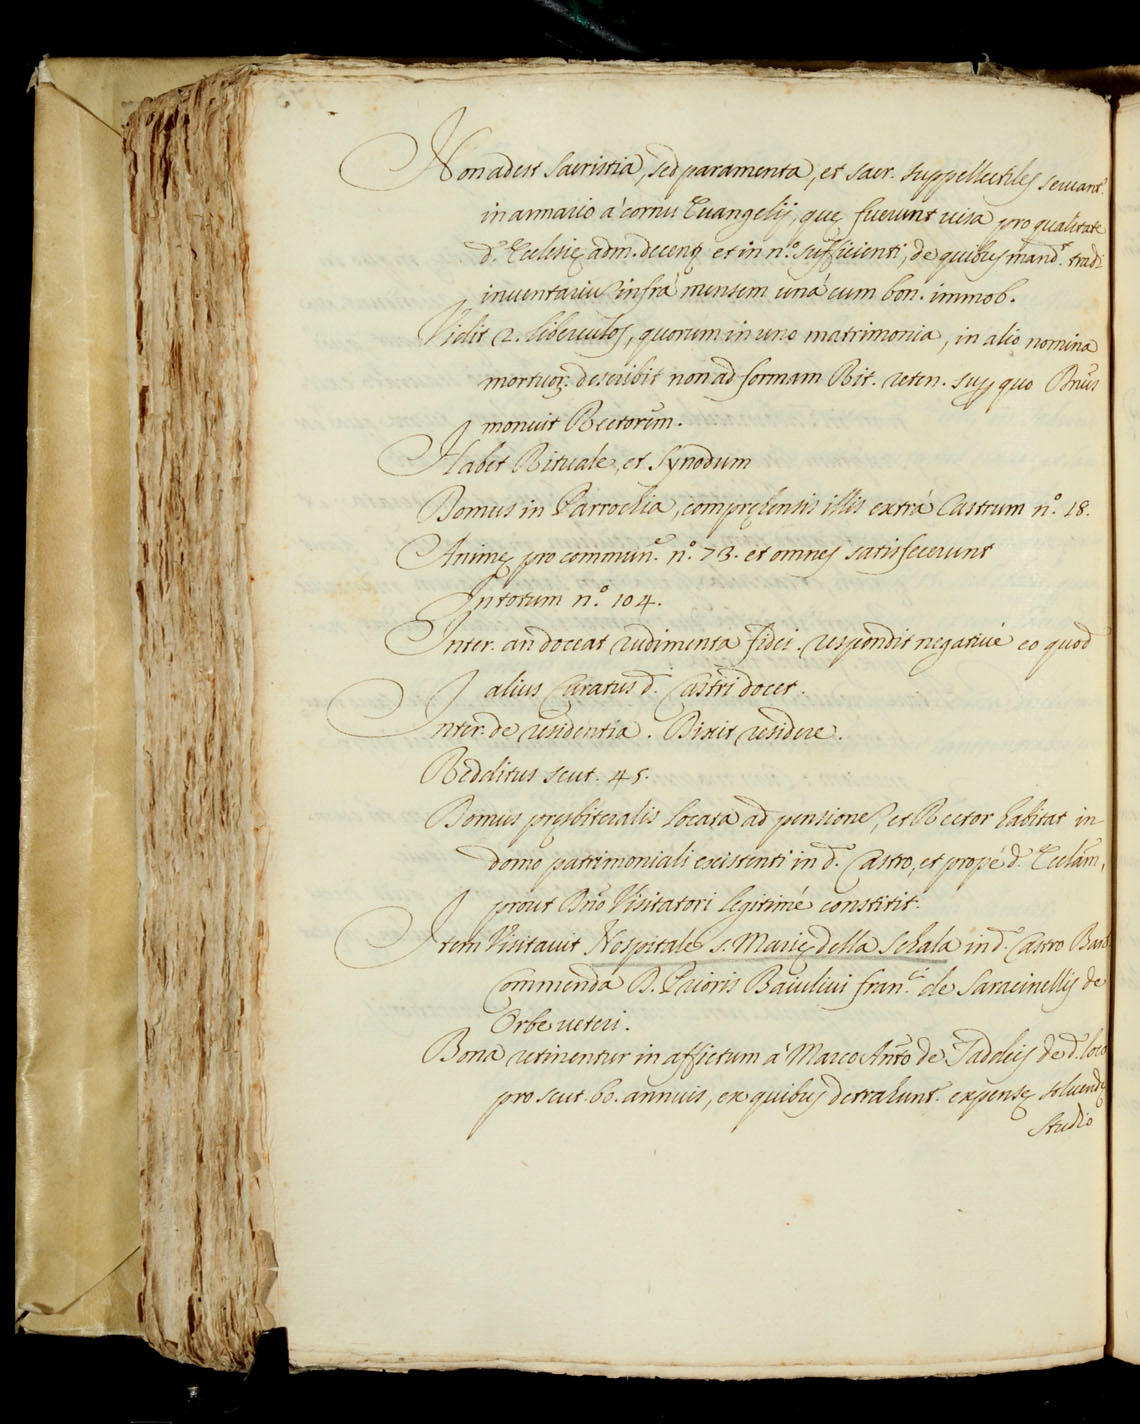 Non adest Sacristia, sed paramenta, et sacr. suppellectiles seruant.
in armario à cornu Euangelij, quę fuerunt uisa pro qualitate
d.ę Ecclesię adm. decenq et in n.º sufficienti, de quibus mand.t tradi
inuentariũ infrà mensem unà cum bon. immob.
Vidit 2. libellulos, quorum in uno matrimonia, in alio nomina
mortuoꝝ describit non ad formam Rit. reten. sup quo Dnũs
monuit Rectorem.
Habet Rituale, et Synodum
Domus in Parrochia, compręhensis illis extrà Castrum n.º 18.
Animę pro commun.e n.º 73. et omnes satisfecerunt
In totum n.º 104.
Inter. an doceat rudimenta fidei. respondit negatiuè eo quod
alius Curatus d. Castri docet.
Inter. de residentia. Dixit residere.
Redditus scut. 45.
Domus pręsbiteralis locata ad pensionẽ, et Rector habitat in
domo patrimoniali existenti in d. Castro, et propè d. Ecclãm,
prout Dnõ Visitatori legitimè constitit.
Item Visitauit Hospitale s. Marię della Schala in d. Castro
Commenda D. Prioris Baiuliui fran.ci de Saracinellis de
Orbe ueteri.
Bona retinentur in affictum à Marco Antõ de Taddeis de d. loco
pro scut. 60. annuis, ex quibus detrahunt. expensę soluendę
studio